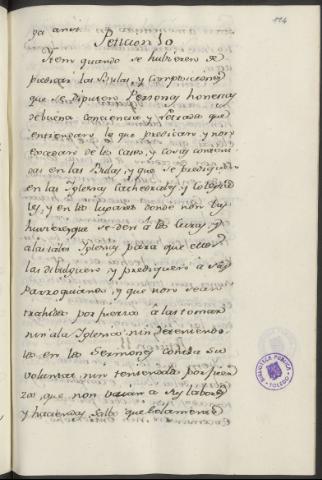 114
ya años
Peticion 50
Item quando se hubieren de
predicar las Bulas, y composiciones
que se Diputen Personas honestas
de buena conciencia y letrada que
entiendan lo que predican y non
excedan de los casos, y cosas conteni-
das en las Bulas, y que se prediquen
en las Iglesias Cathedrales, y Colegia
les, y en los lugares donde non las
huviere que se den á los curas, y
a las tales Iglesias para que ellos
las dibulguen y prediquen a sus
Parroquianos, y que non sean
trahidos por fuerza á las tomar
nin á la Iglesia nin deteniendo
los en los Sermones contra su
voluntad, nin teniendolos por fuer
za, que non vaian a sus labores
y haciendas, salvo que solamente
BIBLIOTECA PÚBLICA
TOLEDO